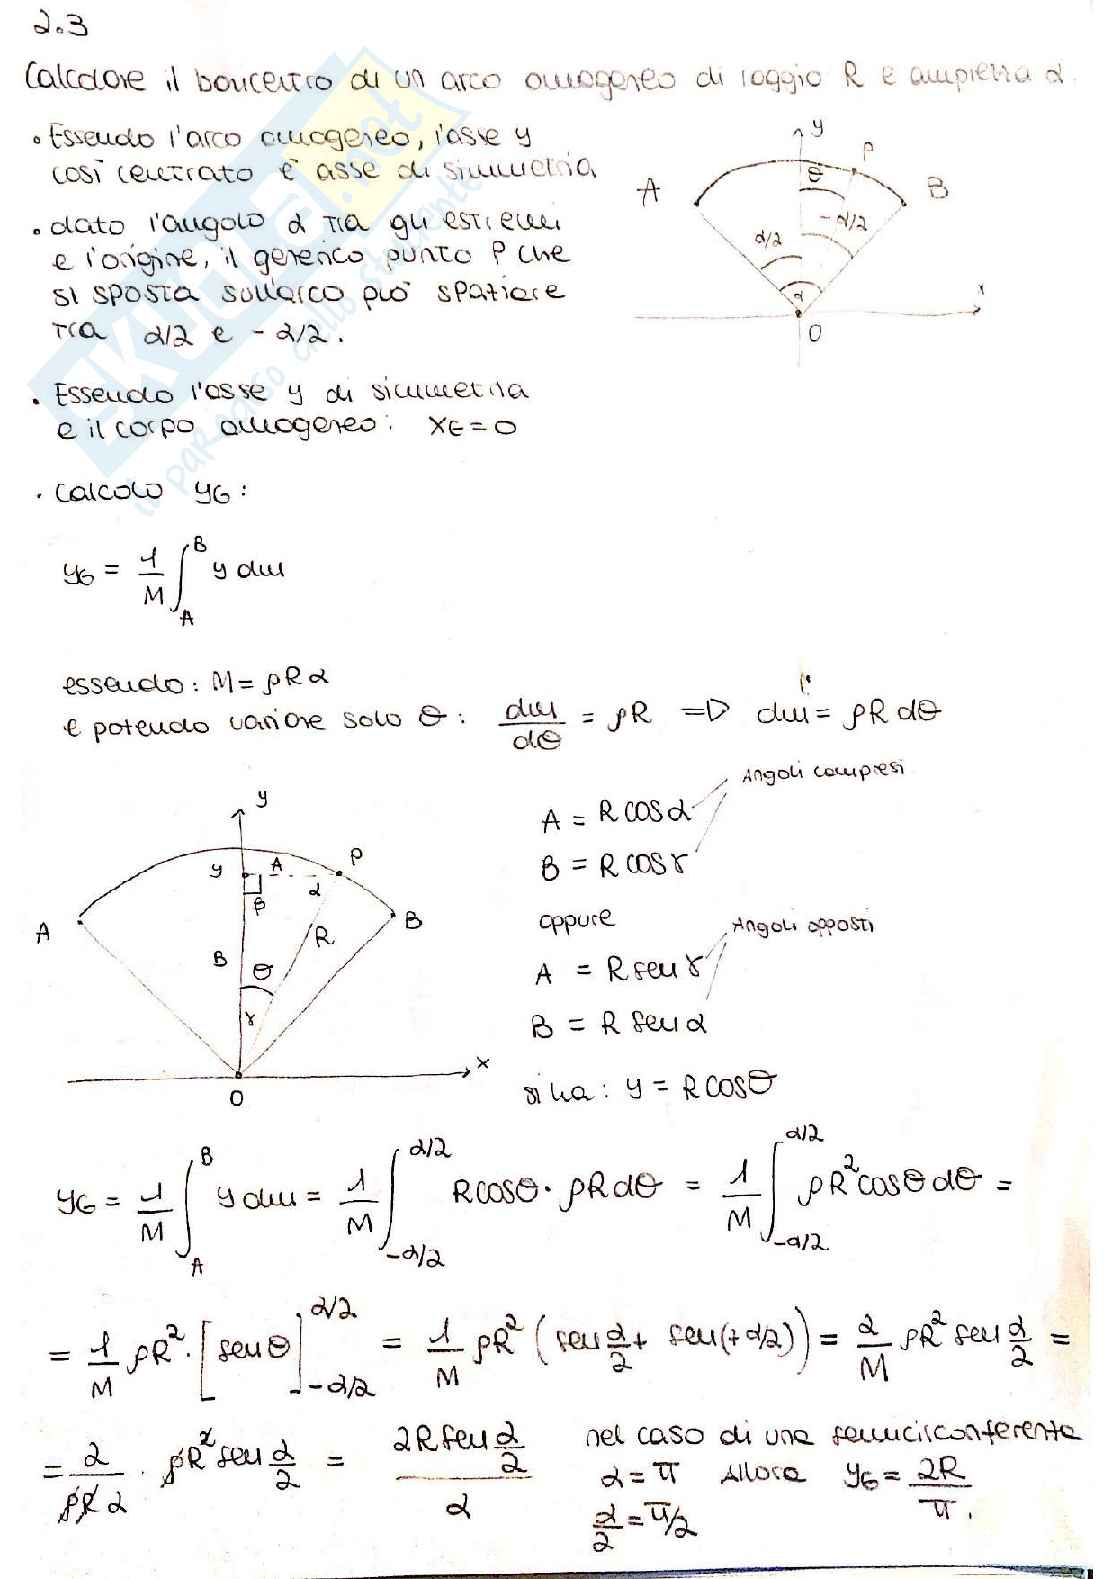 2.3
Calcolare il baricentro di un arco omogeneo di raggio R e ampiezza α.
• Essendo l'arco omogeneo, l'asse y
così centrato è asse di simmetria
• dato l'angolo α tra gli estremi
e l'origine, il generico punto P che
si sposta sull'arco può spaziare
tra α/2 e -α/2.
y
P
θ
A
B
-α/2
α/2
α
x
O
• Essendo l'asse y di simmetria
e il corpo omogeneo: xG=0
• Calcolo yG:
yG = 1/M ∫_A^B y dm
essendo: M = ρRα
e potendo variare solo θ: dm/dθ = ρR => dm = ρR dθ
y
y
A
P
α
β
A
B
R
B
θ
γ
x
O
Angoli compresi
A = R cosα
B = R cosγ
oppure
Angoli opposti
A = R senγ
B = R senα
si ha: y = R cosθ
yG = 1/M ∫_A^B y dm = 1/M ∫_{-α/2}^{α/2} R cosθ · ρR dθ = 1/M ∫_{-α/2}^{α/2} ρR² cosθ dθ =
= 1/M ρR² · [senθ]_{-α/2}^{α/2} = 1/M ρR² (sen α/2 + sen(+α/2)) = 2/M ρR² sen α/2 =
= 2/ρRα · ρR² sen α/2 = 2R sen α/2 / α
nel caso di una semicirconferenza
α = π Allora yG = 2R/π.
α/2 = π/2
SKUOLA.net
il paradiso dello studente